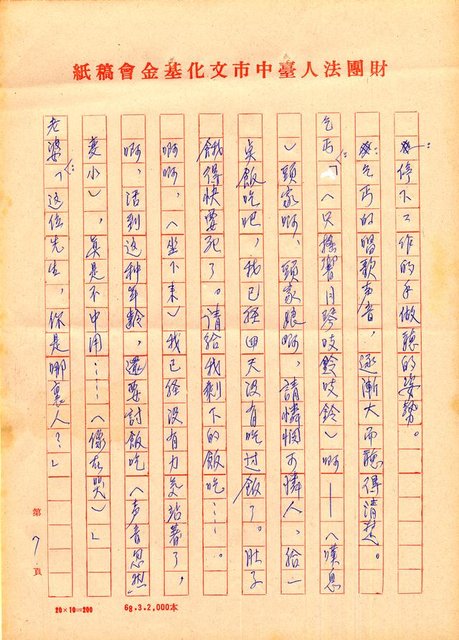 財團法人臺中市文化基金會稿紙
停下工作的手做聽的姿勢。
乞丐的唱歌声音,逐漸大而聽得清楚。
乞丐:「(只搖響月琴吱鈴吱鈴)啊——(嘆息
)頭家啊,頭家娘啊,請憐憫可憐人,給一
吳飯吃吧,我已經四天沒有吃过飯了。肚子
餓得快要死了。請給我剩下的飯吃……。
啊啊,(坐下来)我已经沒有力気站着了,
啊,活到这种年齡,還要討飯吃(声音忽然
変小),真是不中用……(像在哭)」
老婆:「这位先生,你是哪裏人?」
第7頁
20×10=200
68.3.2,000本